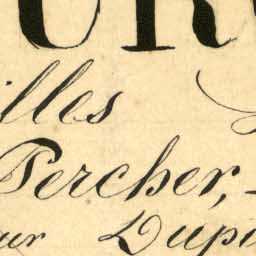 UR
illes
Percher,
ur Dupi